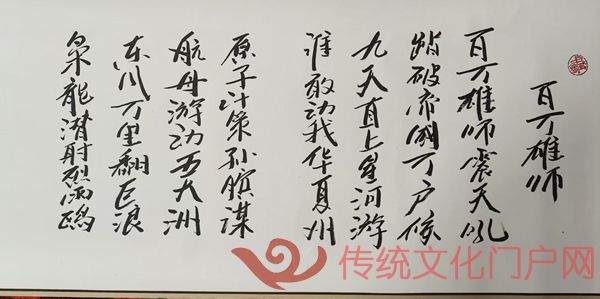 百万雄师
百万雄师震天吼
踏破帝国万户候
九天直上星河游
谁敢动我华夏州
原子计策孙膑谋
航母游动五大洲
东风万里翻巨浪
枭龙潜射烈雨鸥
传统文化门户网